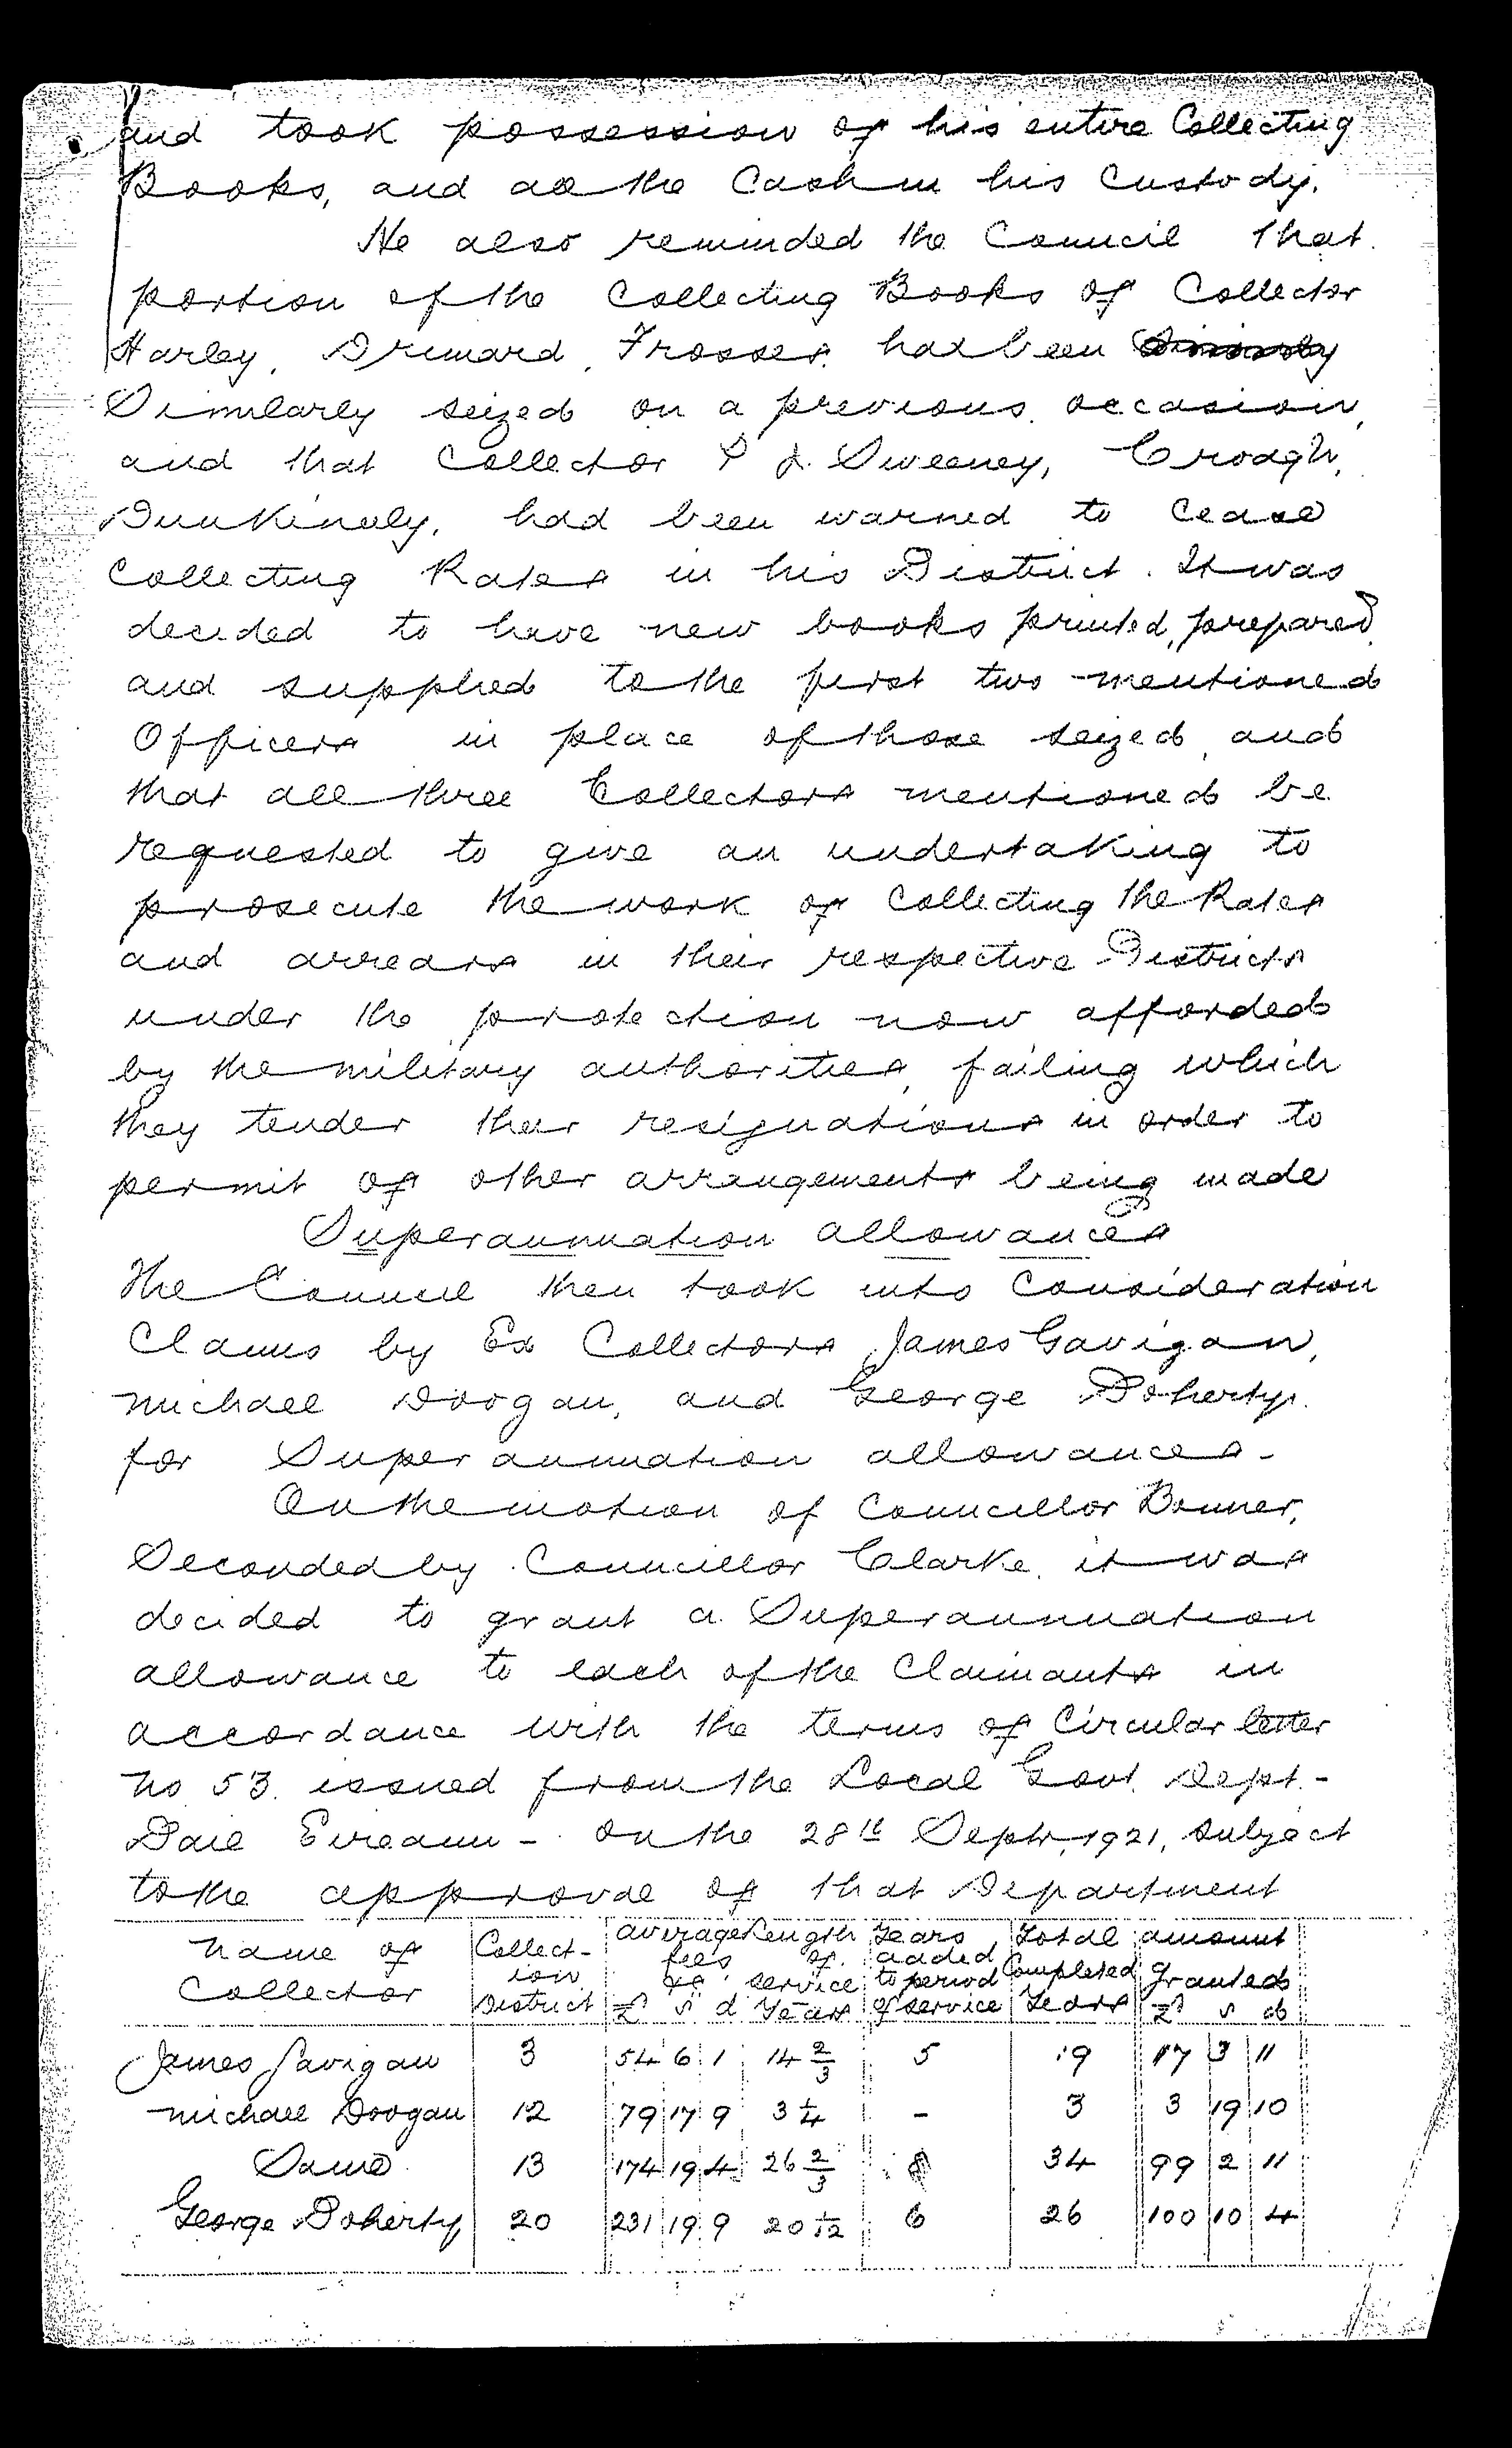 and took possession of his entire Collecting
Books, and all the Cash in his Custody.
He also reminded the Council that
portion of the Collecting Books of Collector
Harley, Drimard, Frosses, had been
Similarly seized on a previous occasion,
and that Collector P J. Sweeney, Croagh,
Dunkineely, had been warned to cease
Collecting Rates in his District. It was
decided to have new books printed, prepared
and supplied to the first two mentioned
Officers in place of those seized, and
that all three Collectors mentioned be
requested to give an undertaking to
prosecute the work of Collecting the Rates
and arrears in their respective Districts
under the protection now afforded
by the military authorities, failing which
they tender their resignations in order to
permit of other arrangements being made
Superannuation allowances
The Council then took into Consideration
Claims by Ex Collectors James Gavigan,
Michael Doogan, and George Doherty.
for Superannuation allowances -
On the motion of Councillor Bonner,
Seconded by Councillor Clarke, it was
decided to grant a Superannuation
allowance to each of the Claimants in
accordance with the terms of Circular letter
No 53 issued from the Local Govt. Dept. -
Dail Eireann - on the 28th Septr, 1921, subject
to the approval of that Department
Name of Collector Collect- ion District average fees £ s d Length of service Years Years added to period of service Total Completed Years amount Granted £ s d
James Gavigan 3 54 6 1 14 2/3 5 19 17 3 11
Michael Doogan 12 79 17 9 3 1/4 - 3 3 19 10
Same 13 174 19 4 26 2/3 8 34 99 2 11
George Doherty 20 231 19 9 20 1/12 6 26 100 10 4